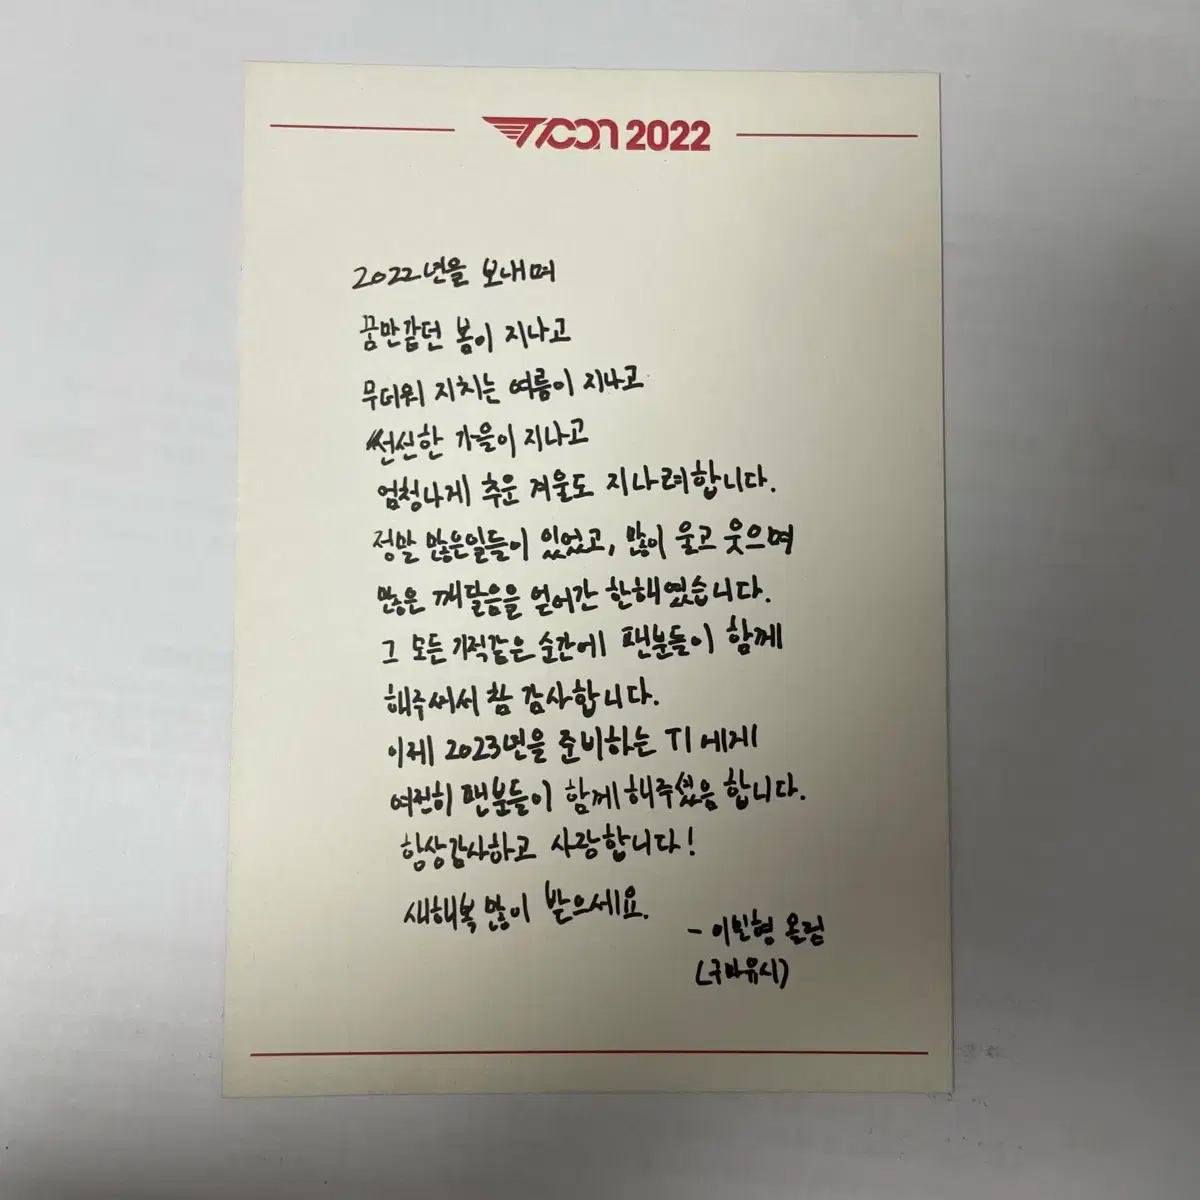 T1CON 2022
2022년을 보내며
꿈만같던 봄이 지나고
무더워 지치는 여름이 지나고
선선한 가을이 지나고
엄청나게 추운 겨울도 지나려합니다.
정말 많은일들이 있었고, 많이 울고 웃으며
많은 깨달음을 얻어간 한해였습니다.
그 모든 기적같은 순간에 팬분들이 함께
해주셔서 참 감사합니다.
이제 2023년을 준비하는 T1에게
여전히 팬분들이 함께해주셨음 합니다.
항상감사하고 사랑합니다!
새해복 많이 받으세요.
- 이민형 올림
(구마유시)